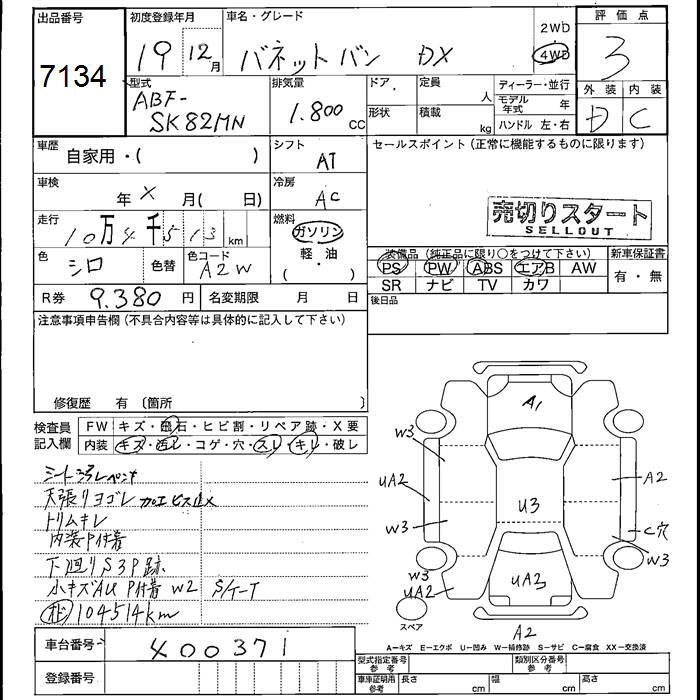 出品番号 初度登録年月 車名・グレード 2WD 評価点
7134 19 12月 バネットバン DX 4WD 3
型式 排気量 ドア 定員 人 ディーラー・並行 外装 内装
ABF- 1.800 CC 形状 積載 kg モデル年式 年 D C
SK82MN ハンドル 左・右
車歴 自家用・( ) シフト AT セールスポイント(正常に機能するものに限ります)
車検 年 X 月( 日) 冷房 AC
売切りスタート
SELLOUT
走行 10万4千513km 燃料 ガソリン
軽・油
( ・ )
色 シロ 色替 色コード A2W
装備品(純正品に限り○をつけて下さい) 新車保証書
PS PW ABS エアB AW 有・無
SR ナビ TV カワ
R券 9.380円 名変期限 月 日 後日品
注意事項申告欄(不具合内容等は具体的に記入して下さい)
修復歴 有 〔箇所 〕
検査員 FW キズ・飛石・ヒビ割・リペア跡・X要
記入欄 内装 キズ・汚レ・コゲ・穴・スレ・キレ・破レ
天張リヨゴレ 加工ビス止X
トリムキレ
内装P付着
下廻りS3P跡
小キズAU P付着 W2 S/ケート
104514km
A1
W3
UA2 A2
U3
W3 C穴
W3
W3
UA2 UA3
スペア A2
A−キズ E−エクボ U−凹み W−補修跡 S−サビ C−腐食 XX−交換済
車台番号 400371
登録番号
型式指定番号 参考 類別区分番号 参考
車庫証明用 参考 長さ cm 幅 cm 高さ cm